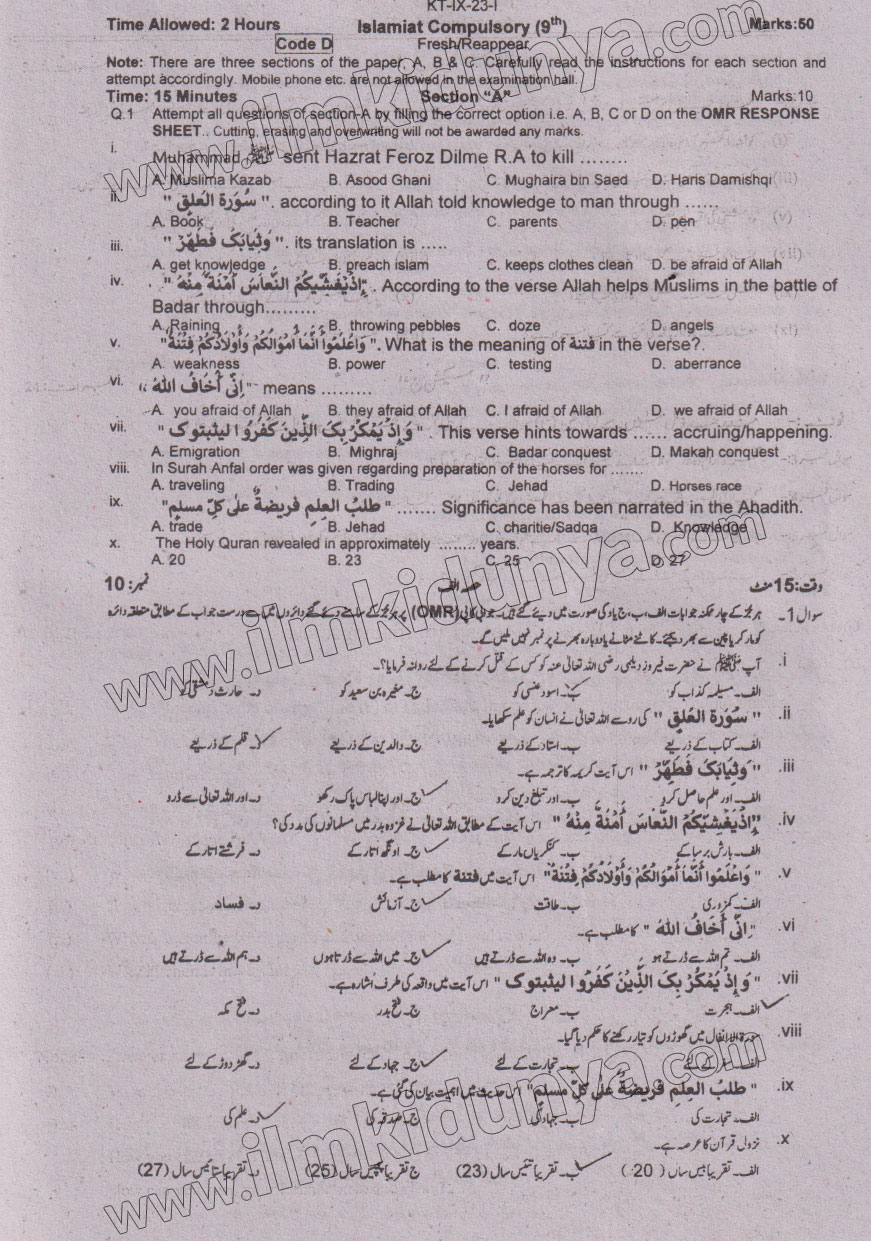 KT-IX-23-I
Time Allowed: 2 Hours Islamiat Compulsory (9th) Marks:50
Code D Fresh/Reappear
Note: There are three sections of the paper, A, B & C. Carefully read the instructions for each section and
attempt accordingly. Mobile phone etc. are not allowed in the examination hall.
Time: 15 Minutes Section "A" Marks:10
Q.1 Attempt all questions of section-A by filling the correct option i.e. A, B, C or D on the OMR RESPONSE
SHEET.. Cutting, erasing and overwriting will not be awarded any marks.
i. Muhammad ﷺ sent Hazrat Feroz Dilme R.A to kill ........
A. Muslima Kazab B. Asood Ghani C. Mughaira bin Saed D. Haris Damishqi
ii. " سُوۡرَۃُ الۡعَلَقِ ". according to it Allah told knowledge to man through ......
A. Book B. Teacher C. parents D. pen
iii. " وَثِیَابَکَ فَطَھِّرۡ ". its translation is .....
A. get knowledge B. preach islam C. keeps clothes clean D. be afraid of Allah
iv. " اِذۡیُغَشِّیۡکُمُ النُّعَاسَ اَمَنَۃً مِّنۡہُ ". According to the verse Allah helps Muslims in the battle of
Badar through.........
A. Raining B. throwing pebbles C. doze D. angels
v. "وَاعۡلَمُوۡا اَنَّمَا اَمۡوَالُکُمۡ وَاَوۡلَادُکُمۡ فِتۡنَۃٌ". What is the meaning of فتنة in the verse?.
A. weakness B. power C. testing D. aberrance
vi. " اِنِّیۡ اَخَافُ اللہَ " means .........
A. you afraid of Allah B. they afraid of Allah C. I afraid of Allah D. we afraid of Allah
vii. " وَ اِذۡ یَمۡکُرُ بِکَ الَّذِیۡنَ کَفَرُوۡا لیثبتوک " . This verse hints towards ...... accruing/happening.
A. Emigration B. Mighraj C. Badar conquest D. Makah conquest
viii. In Surah Anfal order was given regarding preparation of the horses for .......
A. traveling B. Trading C. Jehad D. Horses race
ix. "طلبُ العِلمِ فریضۃٌ علٰی کلِّ مسلمٍ " ....... Significance has been narrated in the Ahadith.
A. trade B. Jehad C. charitie/Sadqa D. Knowledge
x. The Holy Quran revealed in approximately ........ years.
A. 20 B. 23 C. 25 D. 27
وقت:15 منٹ حصہ الف نمبر: 10
سوال 1۔ ہر جُز کے چار ممکنہ جوابات الف، ب، ج یا د کی صورت میں دیئے گئے ہیں۔ جوابی کاپی (OMR) پر ہر جُز کے سامنے دیئے گئے دائروں میں سے درست جواب کے مطابق متعلقہ دائرہ
کو مارکر یا پین سے بھر دیجئے۔ کاٹنے مٹانے یا دوبارہ بھرنے پر نمبر نہیں ملیں گے۔
i. آپ ﷺ نے حضرت فیروز دیلمی رضی اللہ تعالیٰ عنہ کو کس کے قتل کرنے کے لئے روانہ فرمایا؟۔
الف۔ مسیلمہ کذاب کو ب۔ اسود عنسی کو ج۔ مغیرہ بن سعید کو د۔ حارث دمشقی کو
ii. " سُوۡرَۃُ الۡعَلَقِ " کی رو سے اللہ تعالیٰ نے انسان کو علم سکھایا۔
الف۔ کتاب کے ذریعے ب۔ استاد کے ذریعے ج۔ والدین کے ذریعے د۔ قلم کے ذریعے
iii. " وَثِیَابَکَ فَطَھِّرۡ " اس آیت کریمہ کا ترجمہ ہے۔
الف۔ اور علم حاصل کرو ب۔ اور تبلیغ دین کرو ج۔ اور اپنا لباس پاک رکھو د۔ اور اللہ تعالیٰ سے ڈرو
iv. "اِذۡیُغَشِّیۡکُمُ النُّعَاسَ اَمَنَۃً مِّنۡہُ " اس آیت کے مطابق اللہ تعالیٰ نے غزوہ بدر میں مسلمانوں کی مدد کی؟
الف۔ بارش برسا کے ب۔ کنکریاں مار کے ج۔ اونگھ اتار کے د۔ فرشتے اتار کے
v. " وَاعۡلَمُوۡا اَنَّمَا اَمۡوَالُکُمۡ وَاَوۡلَادُکُمۡ فِتۡنَۃٌ" اس آیت میں فتنة کا مطلب ہے۔
الف۔ کمزوری ب۔ طاقت ج۔ آزمائش د۔ فساد
vi. "اِنِّیۡ اَخَافُ اللہَ " کا مطلب ہے۔
الف۔ تم اللہ سے ڈرتے ہو ب۔ وہ اللہ سے ڈرتے ہیں ج۔ میں اللہ سے ڈرتا ہوں د۔ ہم اللہ سے ڈرتے ہیں
vii. " وَ اِذۡ یَمۡکُرُ بِکَ الَّذِیۡنَ کَفَرُوۡا لیثبتوک " اس آیت میں واقعہ کی طرف اشارہ ہے۔
الف۔ ہجرت ب۔ معراج ج۔ فتح بدر د۔ فتح مکہ
viii. سورۃ الانفال میں گھوڑوں کو تیار رکھنے کا حکم دیا گیا۔
الف۔ سفر کے لئے ب۔ تجارت کے لئے ج۔ جہاد کے لئے د۔ گھڑ دوڑ کے لئے
ix. " طلبُ العِلمِ فریضۃٌ علٰی کلِّ مسلمٍ" اس حدیث میں اہمیت بیان کی گئی ہے۔
الف۔ تجارت کی ب۔ جہاد کی ج۔ صدقہ کی د۔ علم کی
x. نزول قرآن کا عرصہ ہے۔
الف۔ تقریبا بیس سال (20 ) ب۔ تقریبا تئیس سال (23) ج تقریبا پچیس سال (25) د۔ تقریبا ستائیس سال (27)
www.ilmkidunya.com
www.ilmkidunya.com
www.ilmkidunya.com